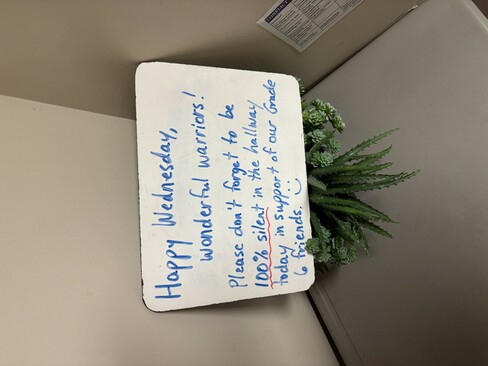 Happy Wednesday,
wonderful warriors!
Please don't forget to be
100% silent in the hallway
today in support of our Grade
6 friends. :)